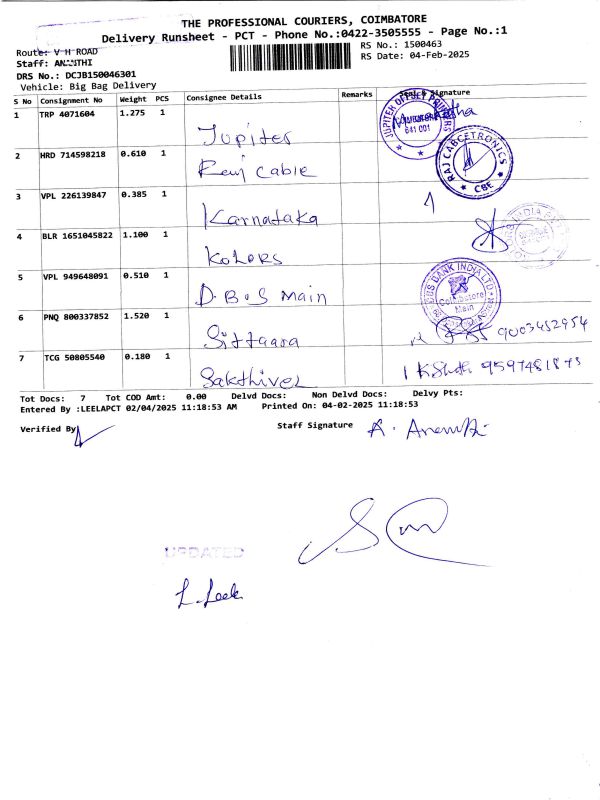 THE PROFESSIONAL COURIERS, COIMBATORE
Delivery Runsheet - PCT - Phone No.:0422-3505555 - Page No.:1
Route: V H ROAD
RS No.: 1500463
Staff: ANANTHI
RS Date: 04-Feb-2025
DRS No.: DCJB150046301
Vehicle: Big Bag Delivery
S No Consignment No Weight PCS Consignee Details Remarks Signature
1 TRP 4071604 1.275 1 Jupiter
JUPITER OFFSET PRINTERS
641 001
2 HRD 714598218 0.610 1 Raj Cable
RAJ CABCETRONICS
CBE
3 VPL 226139847 0.385 1 Karnataka
4 BLR 1651045822 1.100 1 Kolors
5 VPL 949648091 0.510 1 D.B.S Main
DBS BANK INDIA LTD
Coimbatore
Main
6 PNQ 800337852 1.520 1 Sittaara 9003452954
7 TCG 50805540 0.180 1 Sakthivel 9597481873
Tot Docs: 7 Tot COD Amt: 0.00 Delvd Docs: Non Delvd Docs: Delvy Pts:
Entered By :LEELAPCT 02/04/2025 11:18:53 AM Printed On: 04-02-2025 11:18:53
Verified By
Staff Signature A. Ananthi
UPDATED
L. Leela